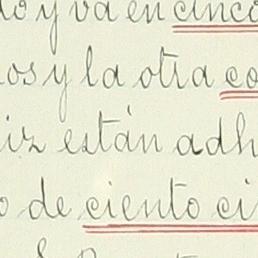 do y va en cinco
os y la otra co
iz están adh
o de ciento ci